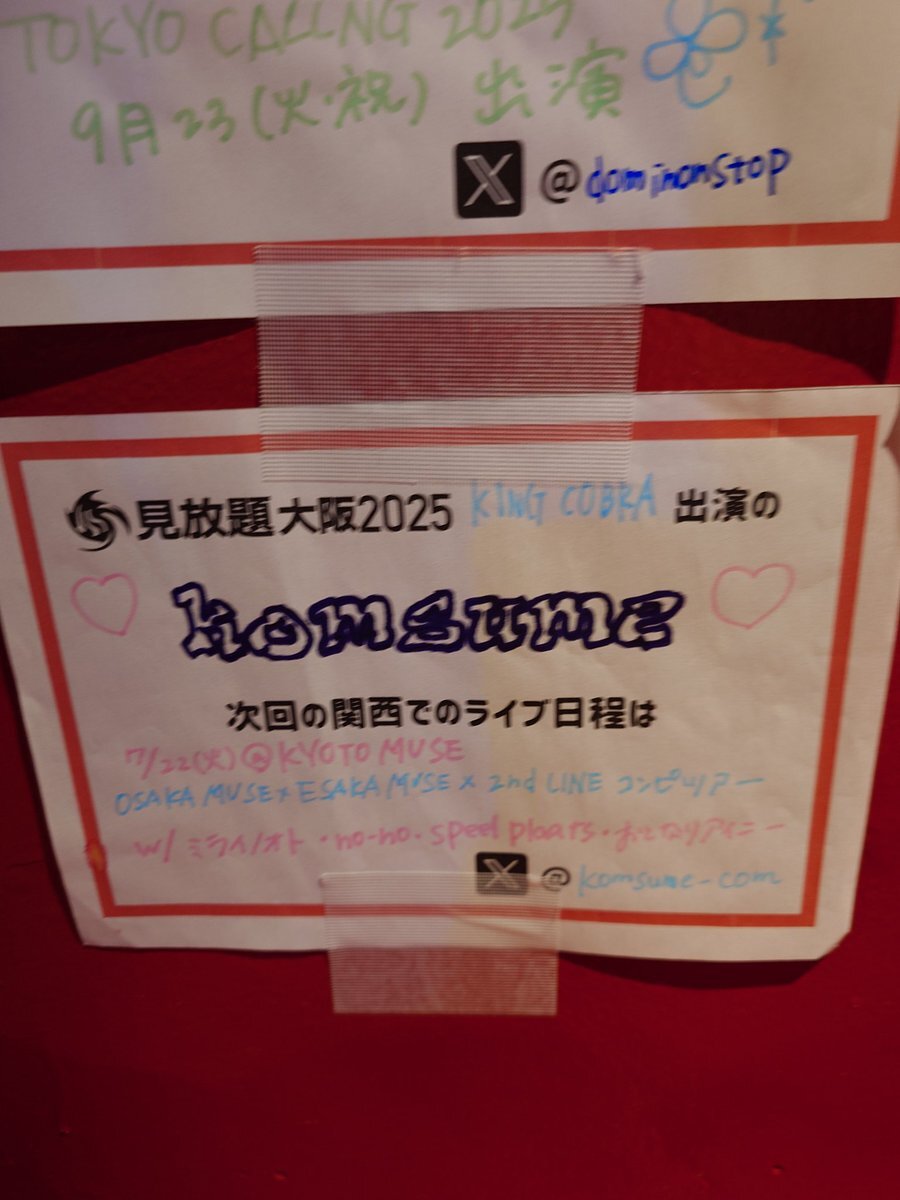 TOKYO CALLING 2025
9月23(火・祝) 出演
X @dominonstop
見放題大阪2025 KING COBRA 出演の
komsume
次回の関西でのライブ日程は
7/22(火)@KYOTO MUSE
OSAKA MUSE×ESAKA MUSE×2nd LINE コンピツアー
w/ ミライノオト・no-no・speel plaars・おとなりアイニー
X @komsume-com